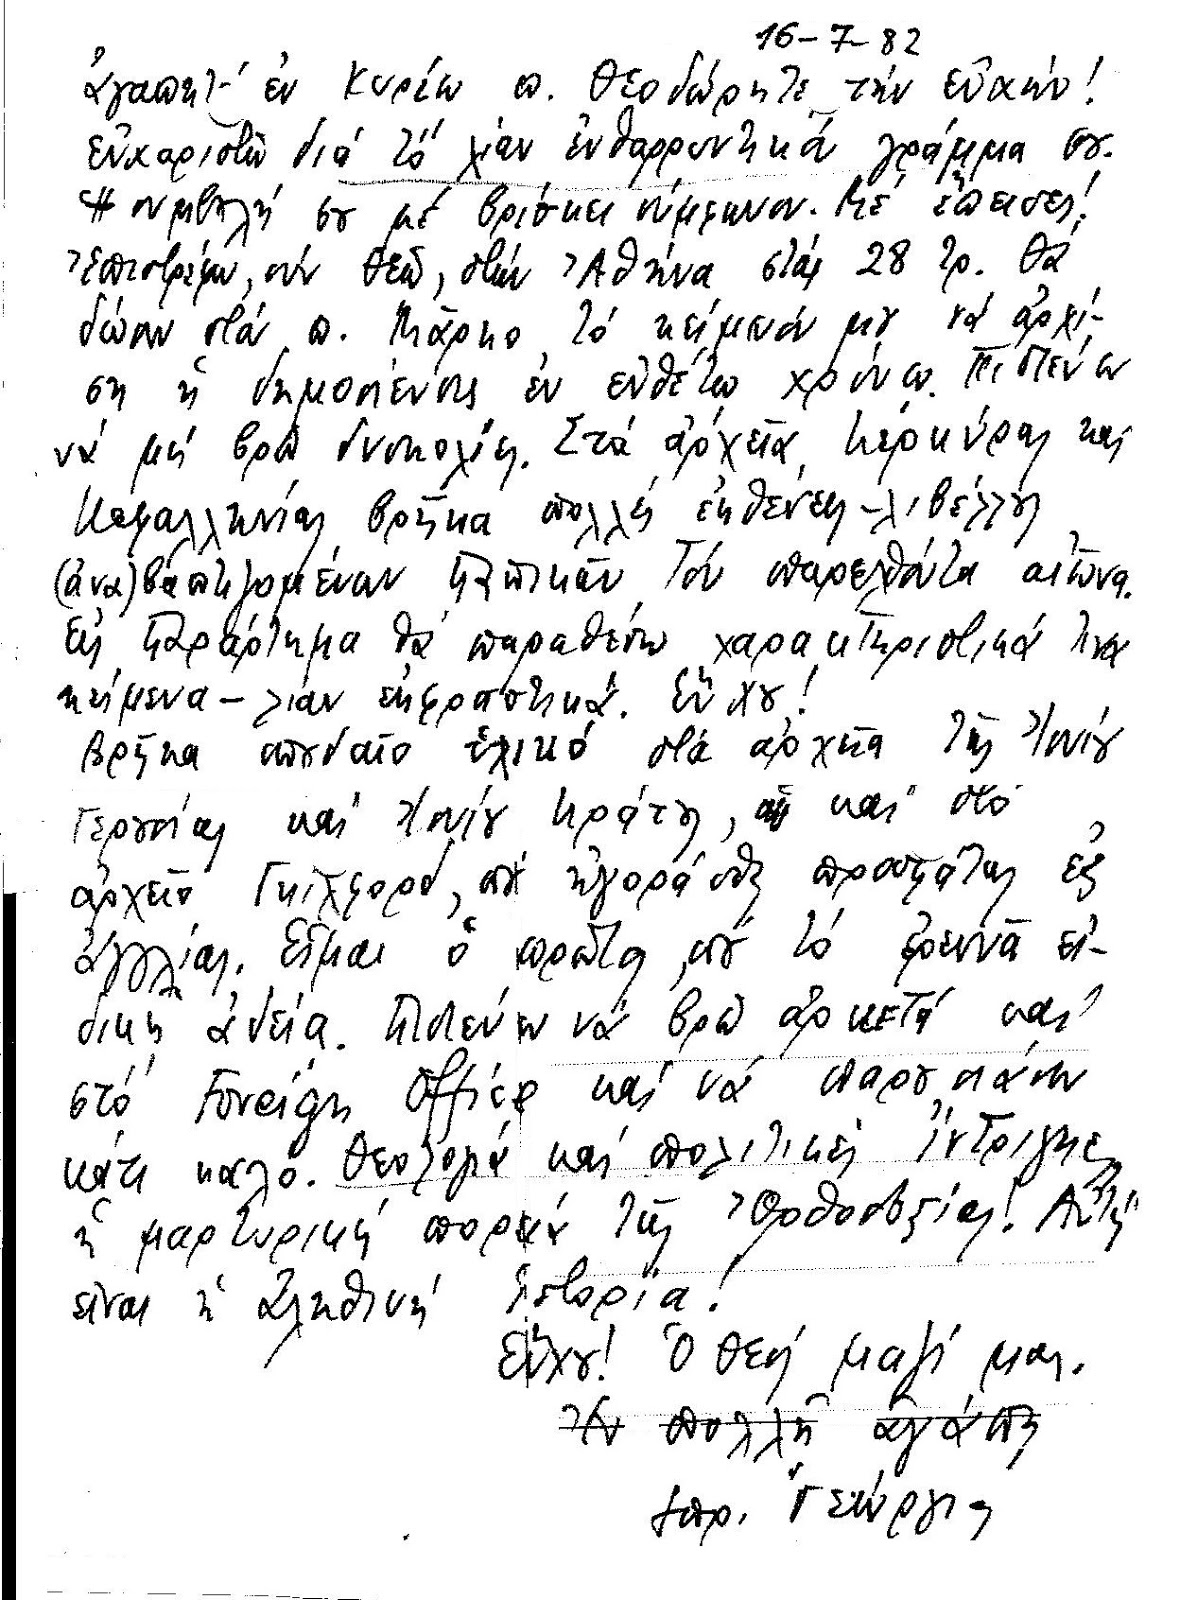 16-7-82
ἀγαπητέ ἐν Κυρίῳ π. Θεοδώρητε τήν εὐχήν!
Εὐχαριστῶ διά τό λίαν ἐνθαρρυντικό γράμμα σου.
Ἡ συμβολή σου μέ βρίσκει σύμφωνον. Μέ ἔπεισες!
Ἐπιστρέφω, σύν Θεῷ, στήν Ἀθήνα στάς 28 τρ. Θά
δώσω στόν π. Μᾶρκο τό κείμενόν μου νά ἀρχί-
ση ἡ δημοσίευσις ἐν εὐθέτῳ χρόνῳ. Πιστεύω
νά μή βρῶ δυσκολίες. Στά ἀρχεῖα Κερκύρας καί
Κεφαλληνίας βρῆκα πολλές ἐκθέσεις-λιβέλλους
(ἀνα)βαπτιζομένων παπικῶν τόν παρελθόντα αἰῶνα.
Εἰς παράρτημα θά παραθέσω χαρακτηριστικά τινα
κείμενα - λίαν ἐκφραστικά. Εὔχου!
Βρῆκα σπουδαῖο ὑλικό στά ἀρχεῖα τῆς Ἰονίου
Γερουσίας καί Ἰονίου Κράτους, ὡς καί στό
ἀρχεῖο Γκίλφορδ, πού ἠγοράσθη προσφάτως ἐξ
Ἀγγλίας. Εἶμαι ὁ πρῶτος πού τό ἐρευνᾶ εἰ-
δικῇ ἀδείᾳ. Πιστεύω νά βρῶ ἀρκετά καί
στό Foreign Office καί νά παρουσιάσω
κάτι καλό. Θεολογία καί πολιτικές ἴντριγκες
ἡ μαρτυρική πορεία τῆς Ὀρθοδοξίας! Αὐτή
εἶναι ἡ ἀληθινή ἱστορία!
Εὔχου! Ὁ Θεός μαζί μας.
Ἐν πολλῇ ἀγάπῃ
†πρ. Γεώργιος